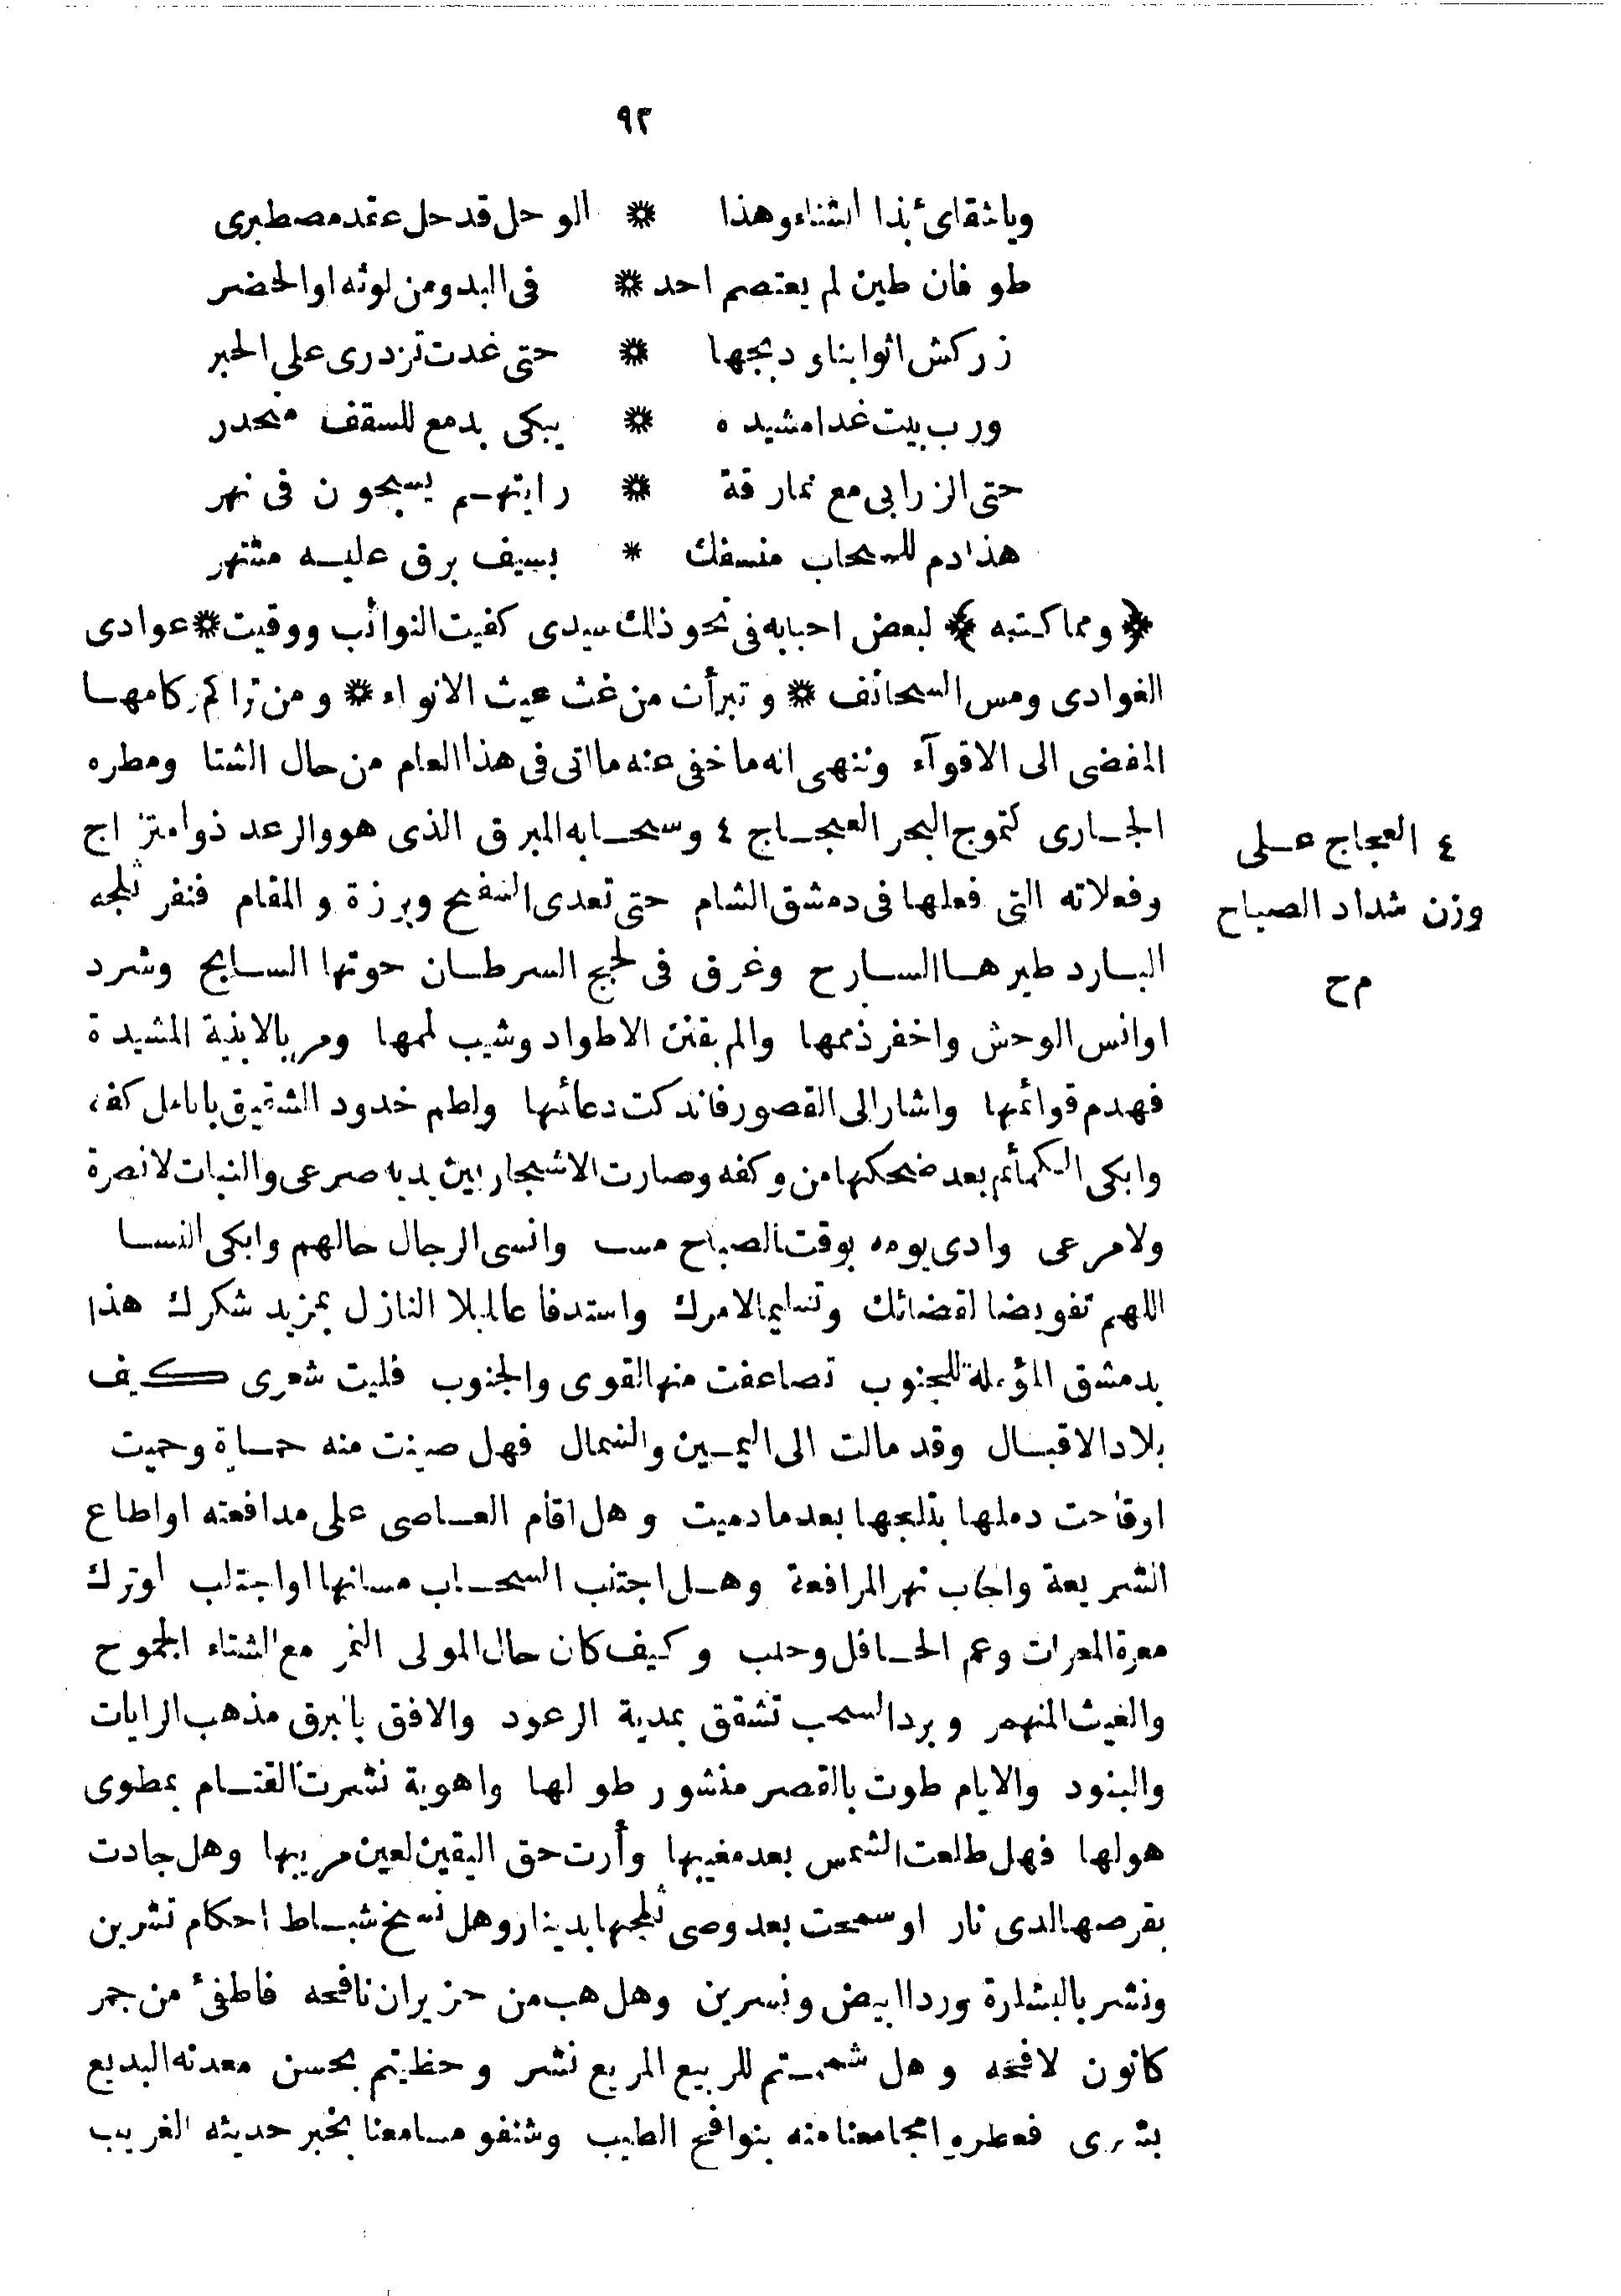 ٩٣
وياشقاىٔ بذا الشتاء وهذا * الوحل قد حل عقد مصطبرى
طوفان طين لم يعتصم احد * فى البدو من لوثه او الحضر
زركش اثوابنا ودبجها * حتى غدت تزدرى على الحبر
ورب بيت غدا مشيده * يبكى بدمع للسقف منحدر
حتى الزرابى مع نمارقة * رايتهم يسبحون فى نهر
هذا دم للسحاب منسفك * بسيف برق عليه مشتهر
﴿ ومما كتبه ﴾ لبعض احبابه فى نحو ذلك سيدى كفيت النوائب ووقيت * عوادى
الغوادى ومس السحائف * وتبرأت من غث عيث الانواء * ومن تراكم ركامها
المفضى الى الاقوآء وننهى انه ما خفى عنه ما اتى فى هذا العام من حال الشتا ومطره
الجارى كتموج البحر العجاج ٤ وسحابه المبرق الذى هو والرعد ذو امتزاج
٤ العجاج على
وزن شداد الصياح
م ح
وفعلاته التى فعلها فى دمشق الشام حتى تعدى السفح وبرزة والمقام فنفر ثلجه
البارد طيرها السارح وغرق فى لجج السرطان حوتها السابح وشرد
اوانس الوحش واخفر ذممها والم بقنن الاطواد وشيب لممها ومر بالابنية المشيدة
فهدم قوائمها واشار الى القصور فاندكت دعائمها ولطم خدود الشقيق بانامل كفه
وابكى الكمائم بعد ضحكها من وكفه وصارت الاشجار بين يديه صرعى والنبات لا نصرة
ولا مرعى وادى يومه بوقت الصباح مسا وانسى الرجال حالهم وابكى النسا
اللهم تفويضا لقضائك وتسليما لامرك واستدفاعا للبلا النازل بمزيد شكرك هذا
بدمشق المؤملة للجنوب تضاعفت منها القوى والجنوب فليت شعرى كيف
بلاد الاقبال وقد مالت الى اليمين والشمال فهل صينت منه حماة وحميت
اوقاحت دملها بثلجها بعد ما دميت وهل اقام العاصى على مدافعته او اطاع
الشريعة واجاب نهر المرافعة وهل اجتنب السحاب مسانبها او اجتلب او ترك
معرة المعرات وعم الحافل وحلب وكيف كان حال المولى النمر مع الشتاء الجموح
والغيث المنهمر وبرد السحب تشقق بمدية الرعود والافق بالبرق مذهب الرايات
والبنود والايام طوت بالقصر منشور طولها واهوية نشرت القتام بمطوى
هولها فهل طلعت الشمس بعد مغيبها وأرت حق اليقين لعين مريبها وهل جادت
بقرصها لدى نار او سمحت بعد وصى ثلجها بدينار وهل نسخ شباط احكام تشرين
ونشر بالبشارة وردا ابيض ونسرين وهل هب من حزيران نافحه فاطفئ من جمر
كانون لافحه وهل شممتم للربيع المربع نشر وحظيتم بحسن معدنه البديع
بشرى فعطرو امجامعنا منه بنوافح الطيب وشنفو مسامعنا بخبر حديثه الغريب